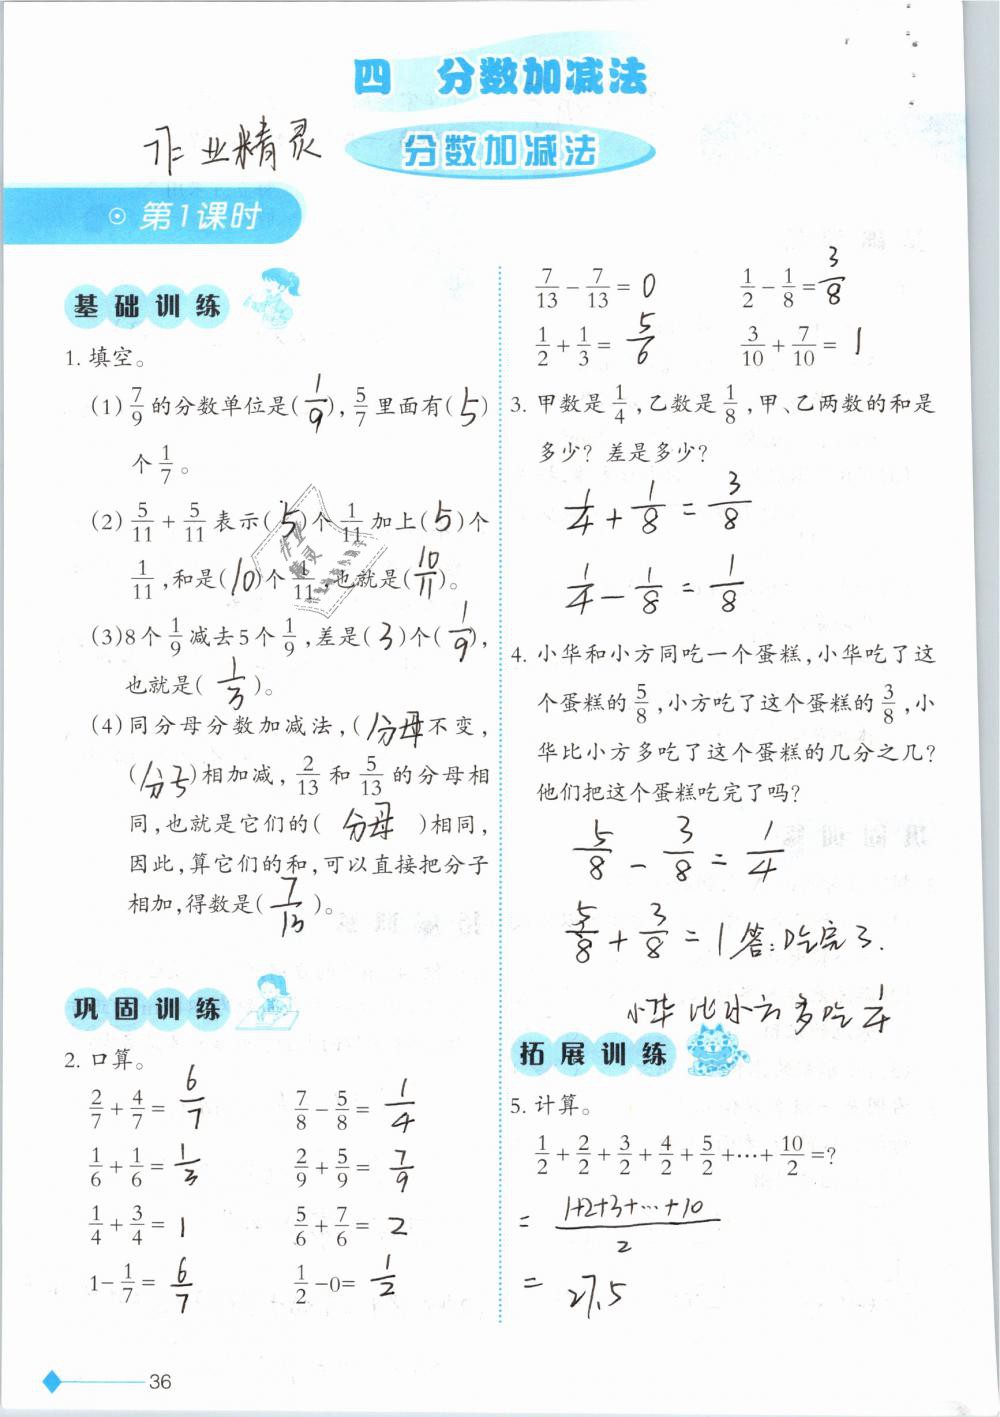 四 分数加减法
作业精灵
分数加减法
第1课时
基础训练
1. 填空。
(1) 7/9 的分数单位是( 1/9 ), 5/7 里面有( 5 )
个 1/7 。
(2) 5/11 + 5/11 表示( 5 )个 1/11 加上( 5 )个
1/11 ,和是( 10 )个 1/11 ,也就是( 10/11 )。
(3) 8个 1/9 减去5个 1/9 ,差是( 3 )个( 1/9 ),
也就是( 1/3 )。
(4) 同分母分数加减法,( 分母 )不变,
( 分子 )相加减, 2/13 和 5/13 的分母相
同,也就是它们的( 分母 )相同,
因此,算它们的和,可以直接把分子
相加,得数是( 7/13 )。
巩固训练
2. 口算。
2/7 + 4/7 = 6/7 7/8 - 5/8 = 1/4
1/6 + 1/6 = 1/3 2/9 + 5/9 = 7/9
1/4 + 3/4 = 1 5/6 + 7/6 = 2
1 - 1/7 = 6/7 1/2 - 0 = 1/2
7/13 - 7/13 = 0 1/2 - 1/8 = 3/8
1/2 + 1/3 = 5/6 3/10 + 7/10 = 1
3. 甲数是 1/4 ,乙数是 1/8 ,甲、乙两数的和是
多少? 差是多少?
1/4 + 1/8 = 3/8
1/4 - 1/8 = 1/8
4. 小华和小方同吃一个蛋糕,小华吃了这
个蛋糕的 5/8 ,小方吃了这个蛋糕的 3/8 ,小
华比小方多吃了这个蛋糕的几分之几?
他们把这个蛋糕吃完了吗?
5/8 - 3/8 = 1/4
5/8 + 3/8 = 1 答:吃完了.
小华比小方多吃 1/4
拓展训练
5. 计算。
1/2 + 2/2 + 3/2 + 4/2 + 5/2 + … + 10/2 = ?
= (1+2+3+…+10)/2
= 27.5
36